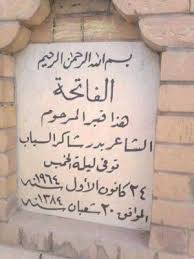 بسم الله الرحمن الرحيم
الفاتحة
هذا قبر المرحوم
الشاعر بدر شاكر السياب
توفي ليلة الخميس
٢٤ كانون الأول ١٩٦٤ سنه
الموافق ٢٠ شعبان ١٣٨٤ سنه